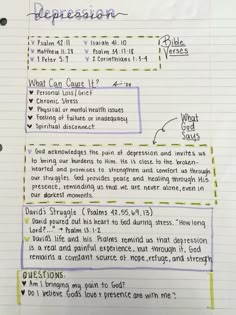 Depression
♥ Psalm 42:11 ♥ Isaiah 41:10
♥ Matthew 11:28 ♥ Psalm 34:17-18
♥ 1 Peter 5:7 ♥ 2 Corinthians 1:3-4
Bible
Verses
What Can Cause It?
♥ Personal Loss/Grief
♥ Chronic Stress
♥ Physical or mental health issues
♥ Feeling of failure or inadequacy
♥ Spiritual disconnect
What
God
Says
♥ God acknowledges the pain of depression and invites us
to bring our burdens to Him. He is close to the broken-
hearted and promises to strengthen and comfort us through
our struggles. God provides peace and healing through His
presence, reminding us that we are never alone, even in
our darkest moments.
David's Struggle (Psalms 42, 55, 69, 13)
♥ David poured out his heart to God during stress. "How long
Lord?..." → Psalm 13:1-2
♥ David's life and his Psalms remind us that depression
is a real and painful experience, but through it, God
remains a constant source of hope, refuge, and strength
QUESTIONS:
♥ Am I bringing my pain to God?
♥ Do I believe God's love + presence are with me?